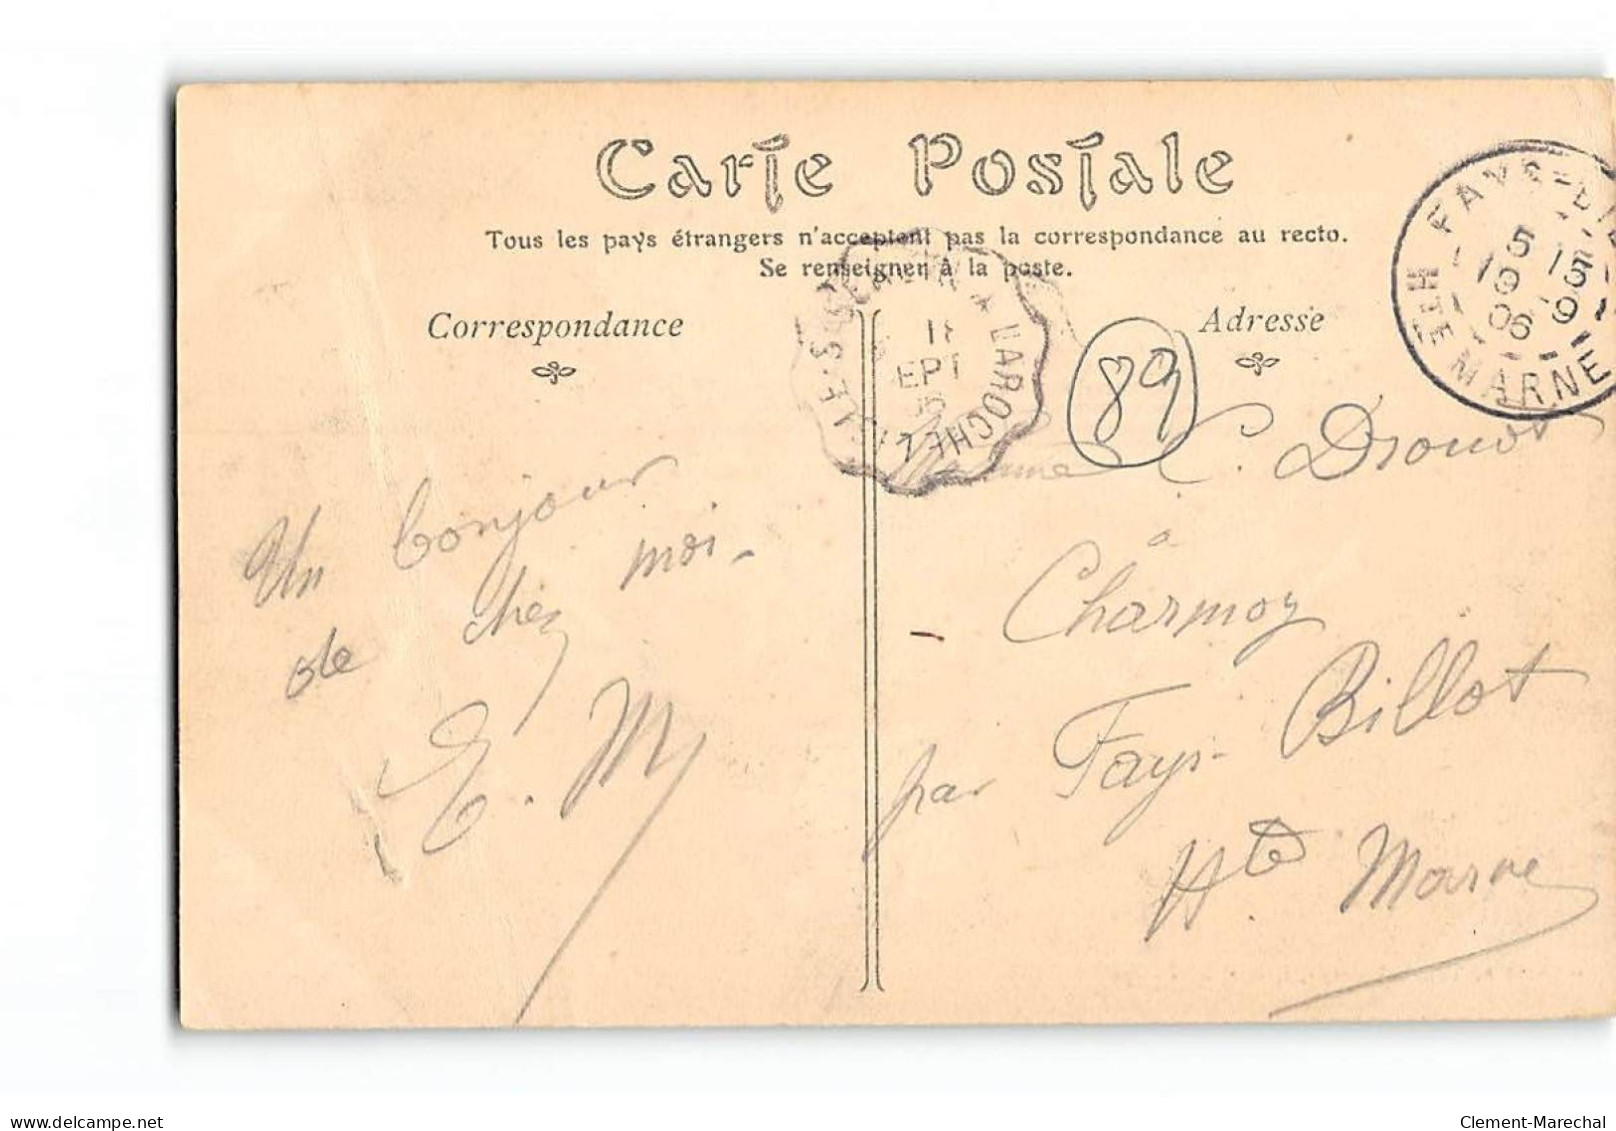 Carte Postale
Tous les pays étrangers n'acceptent pas la correspondance au recto.
Se renseigner à la poste.
Correspondance
Adresse
FAYS-BI
5
15
19
-9
06
HTE MARNE
LAROCHE
EPT
89
Un bonjour
de chez moi-
E. M
C. Drouot
à
Charmoy
par Fays-Billot
Hte Marne
delcampe.net
Clement-Marechal